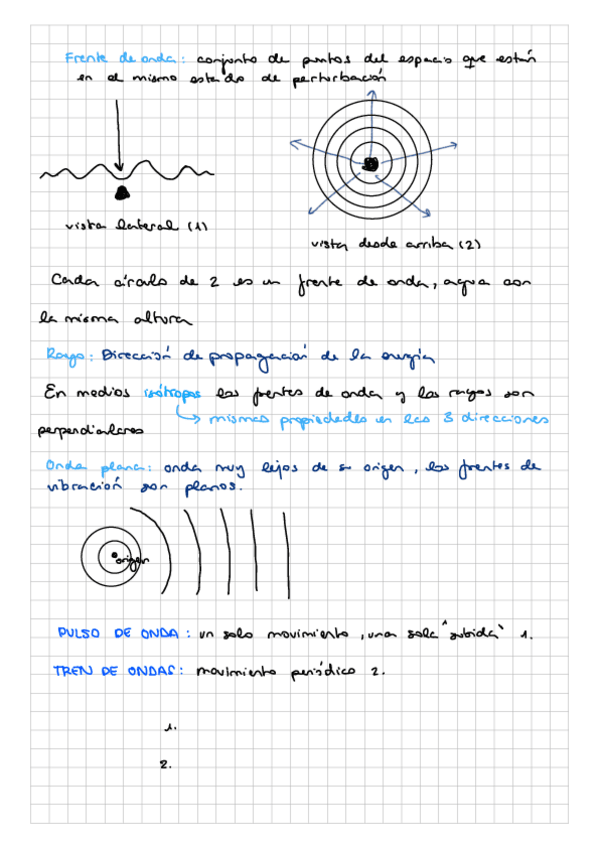 Frente de onda: conjunto de puntos del espacio que están
en el mismo estado de perturbación
vista lateral (1)
vista desde arriba (2)
Cada círculo de 2 es un frente de onda, agua con
la misma altura
Rayo: Dirección de propagación de la energía
En medios isótropos los frentes de onda y los rayos son
mismas propiedades en las 3 direcciones
perpendiculares
Onda plana: onda muy lejos de su origen, los frentes de
vibración son planos.
origen
PULSO DE ONDA: un solo movimiento, una sola "subida" 1.
TREN DE ONDAS: movimiento periódico 2.
1.
2.